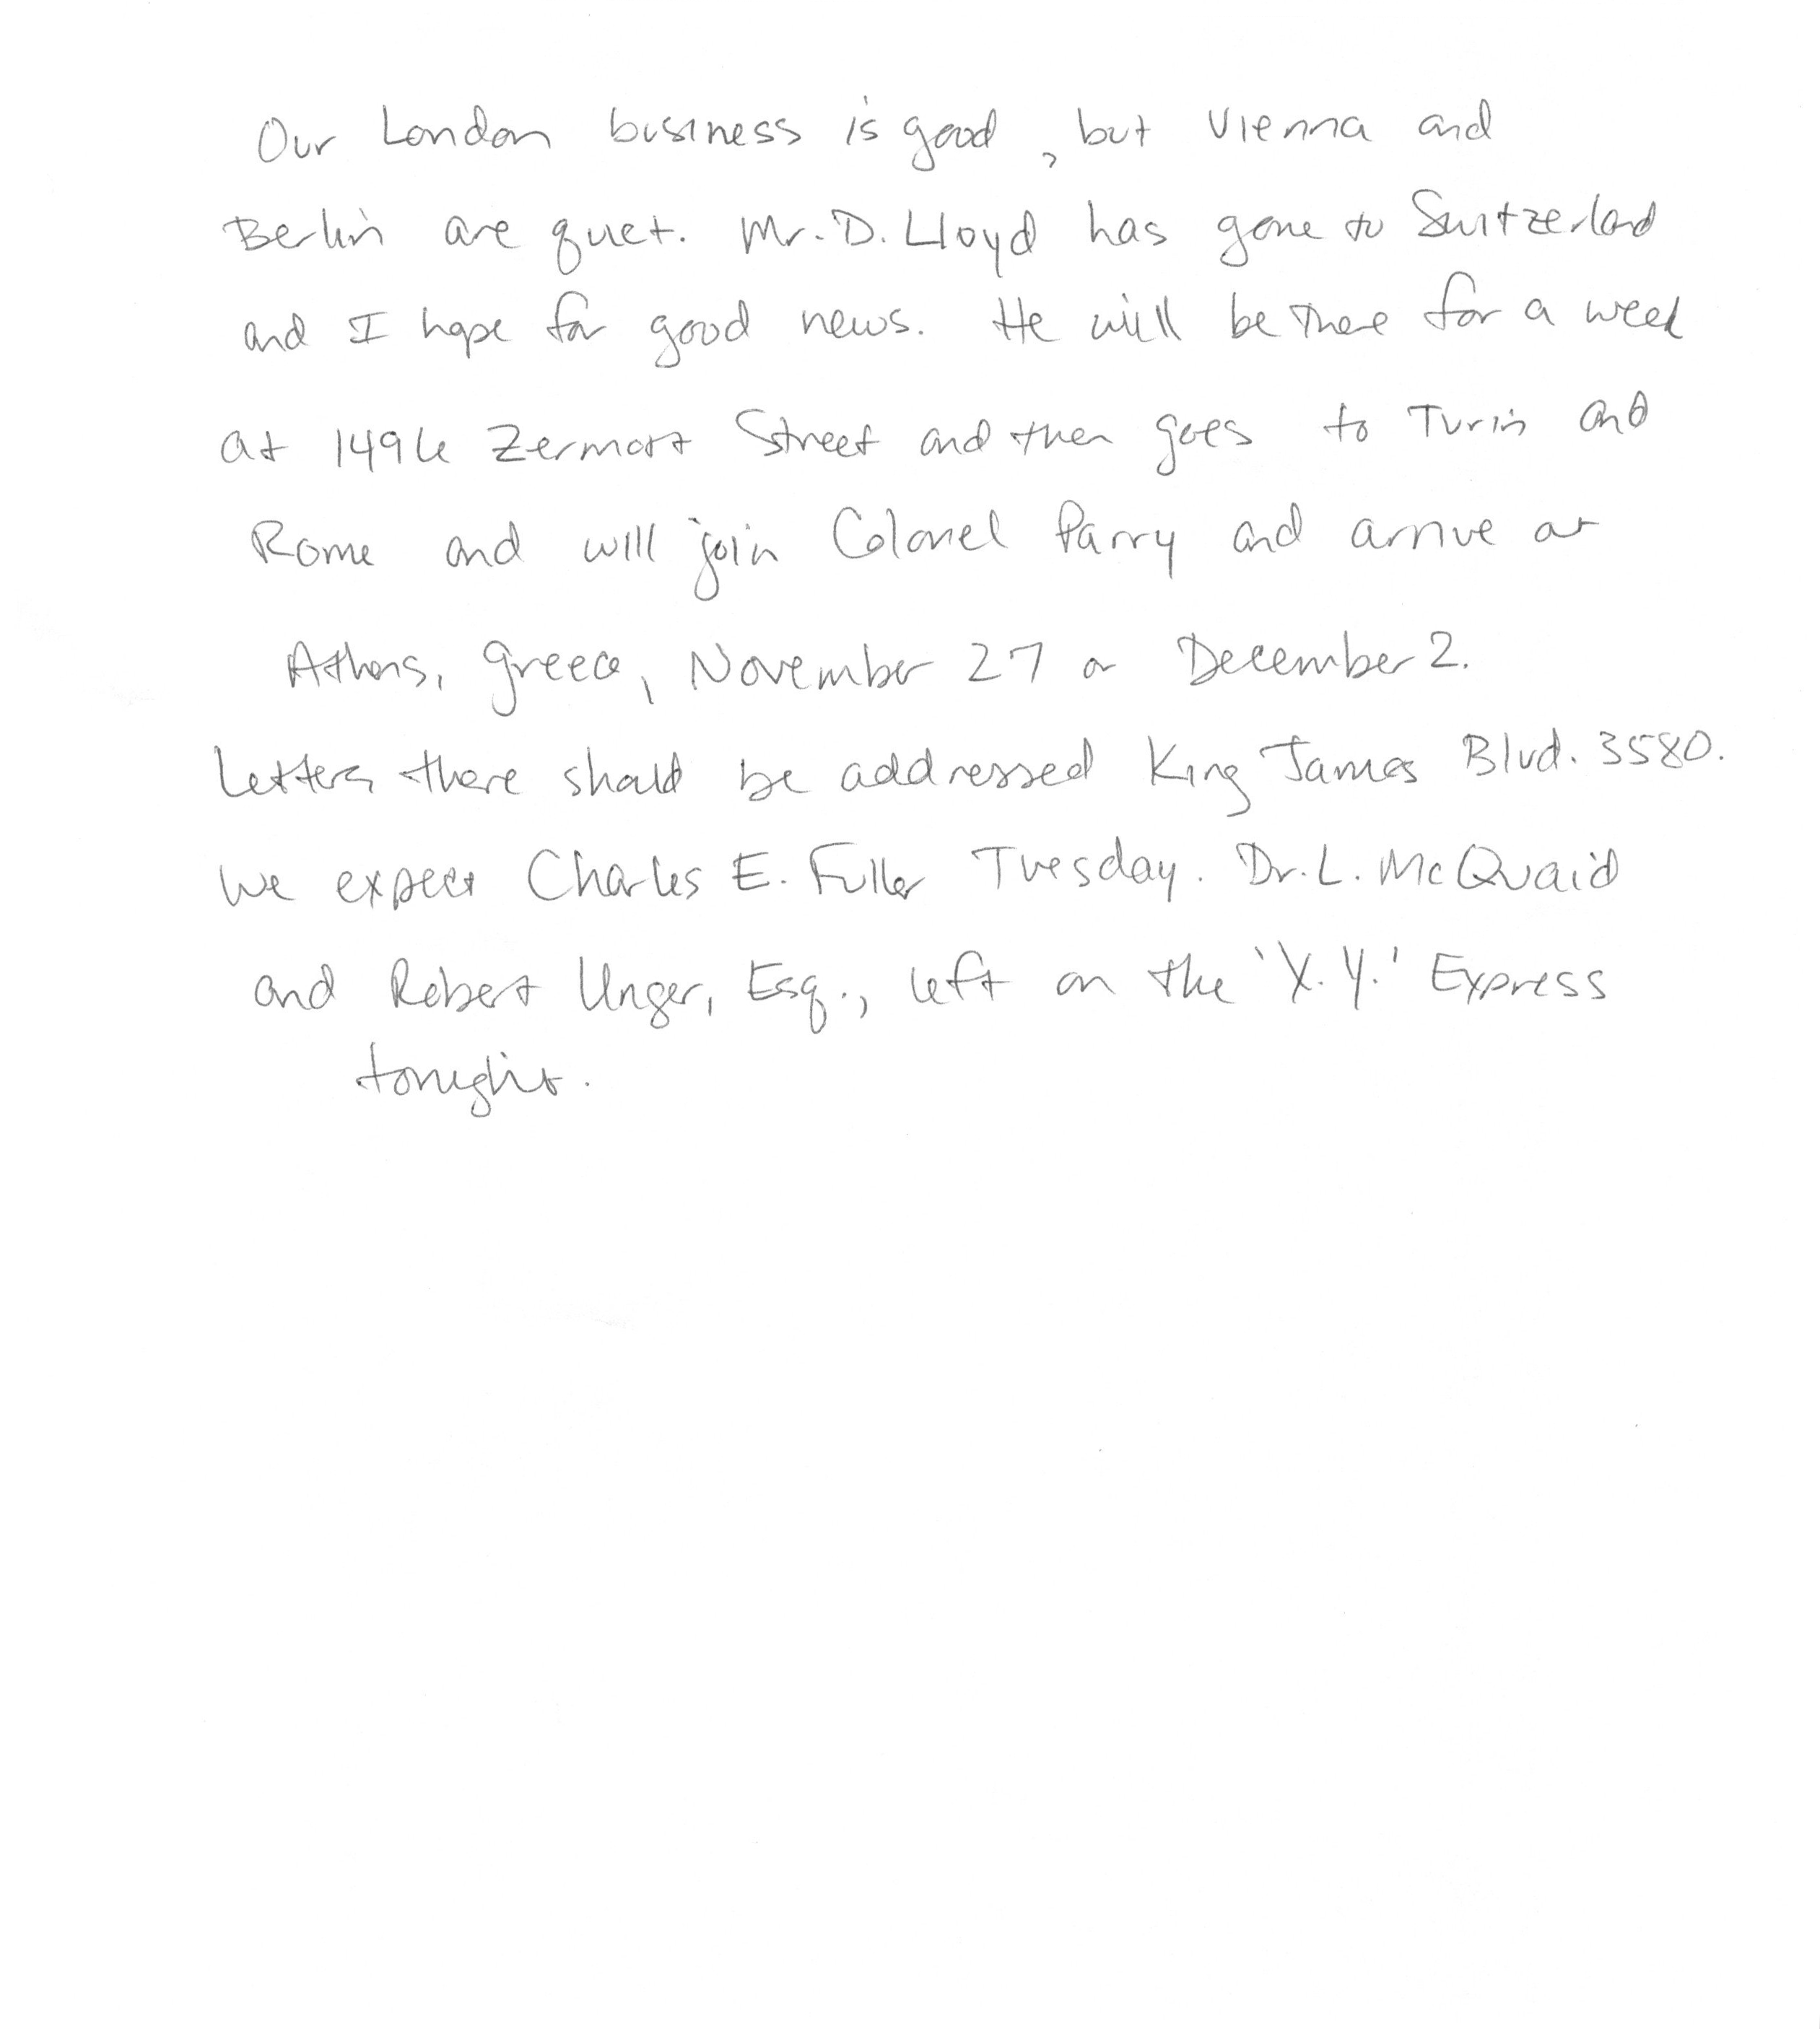 Our London business is good, but Vienna and
Berlin are quiet. Mr. D. Lloyd has gone to Switzerland
and I hope for good news. He will be there for a week
at 1496 Zermott Street and then goes to Turin and
Rome and will join Colonel Parry and arrive at
Athens, Greece, November 27 or December 2.
Letters there should be addressed King James Blvd. 3580.
We expect Charles E. Fuller Tuesday. Dr. L. McQuaid
and Robert Unger, Esq., left on the 'X.Y.' Express
tonight.